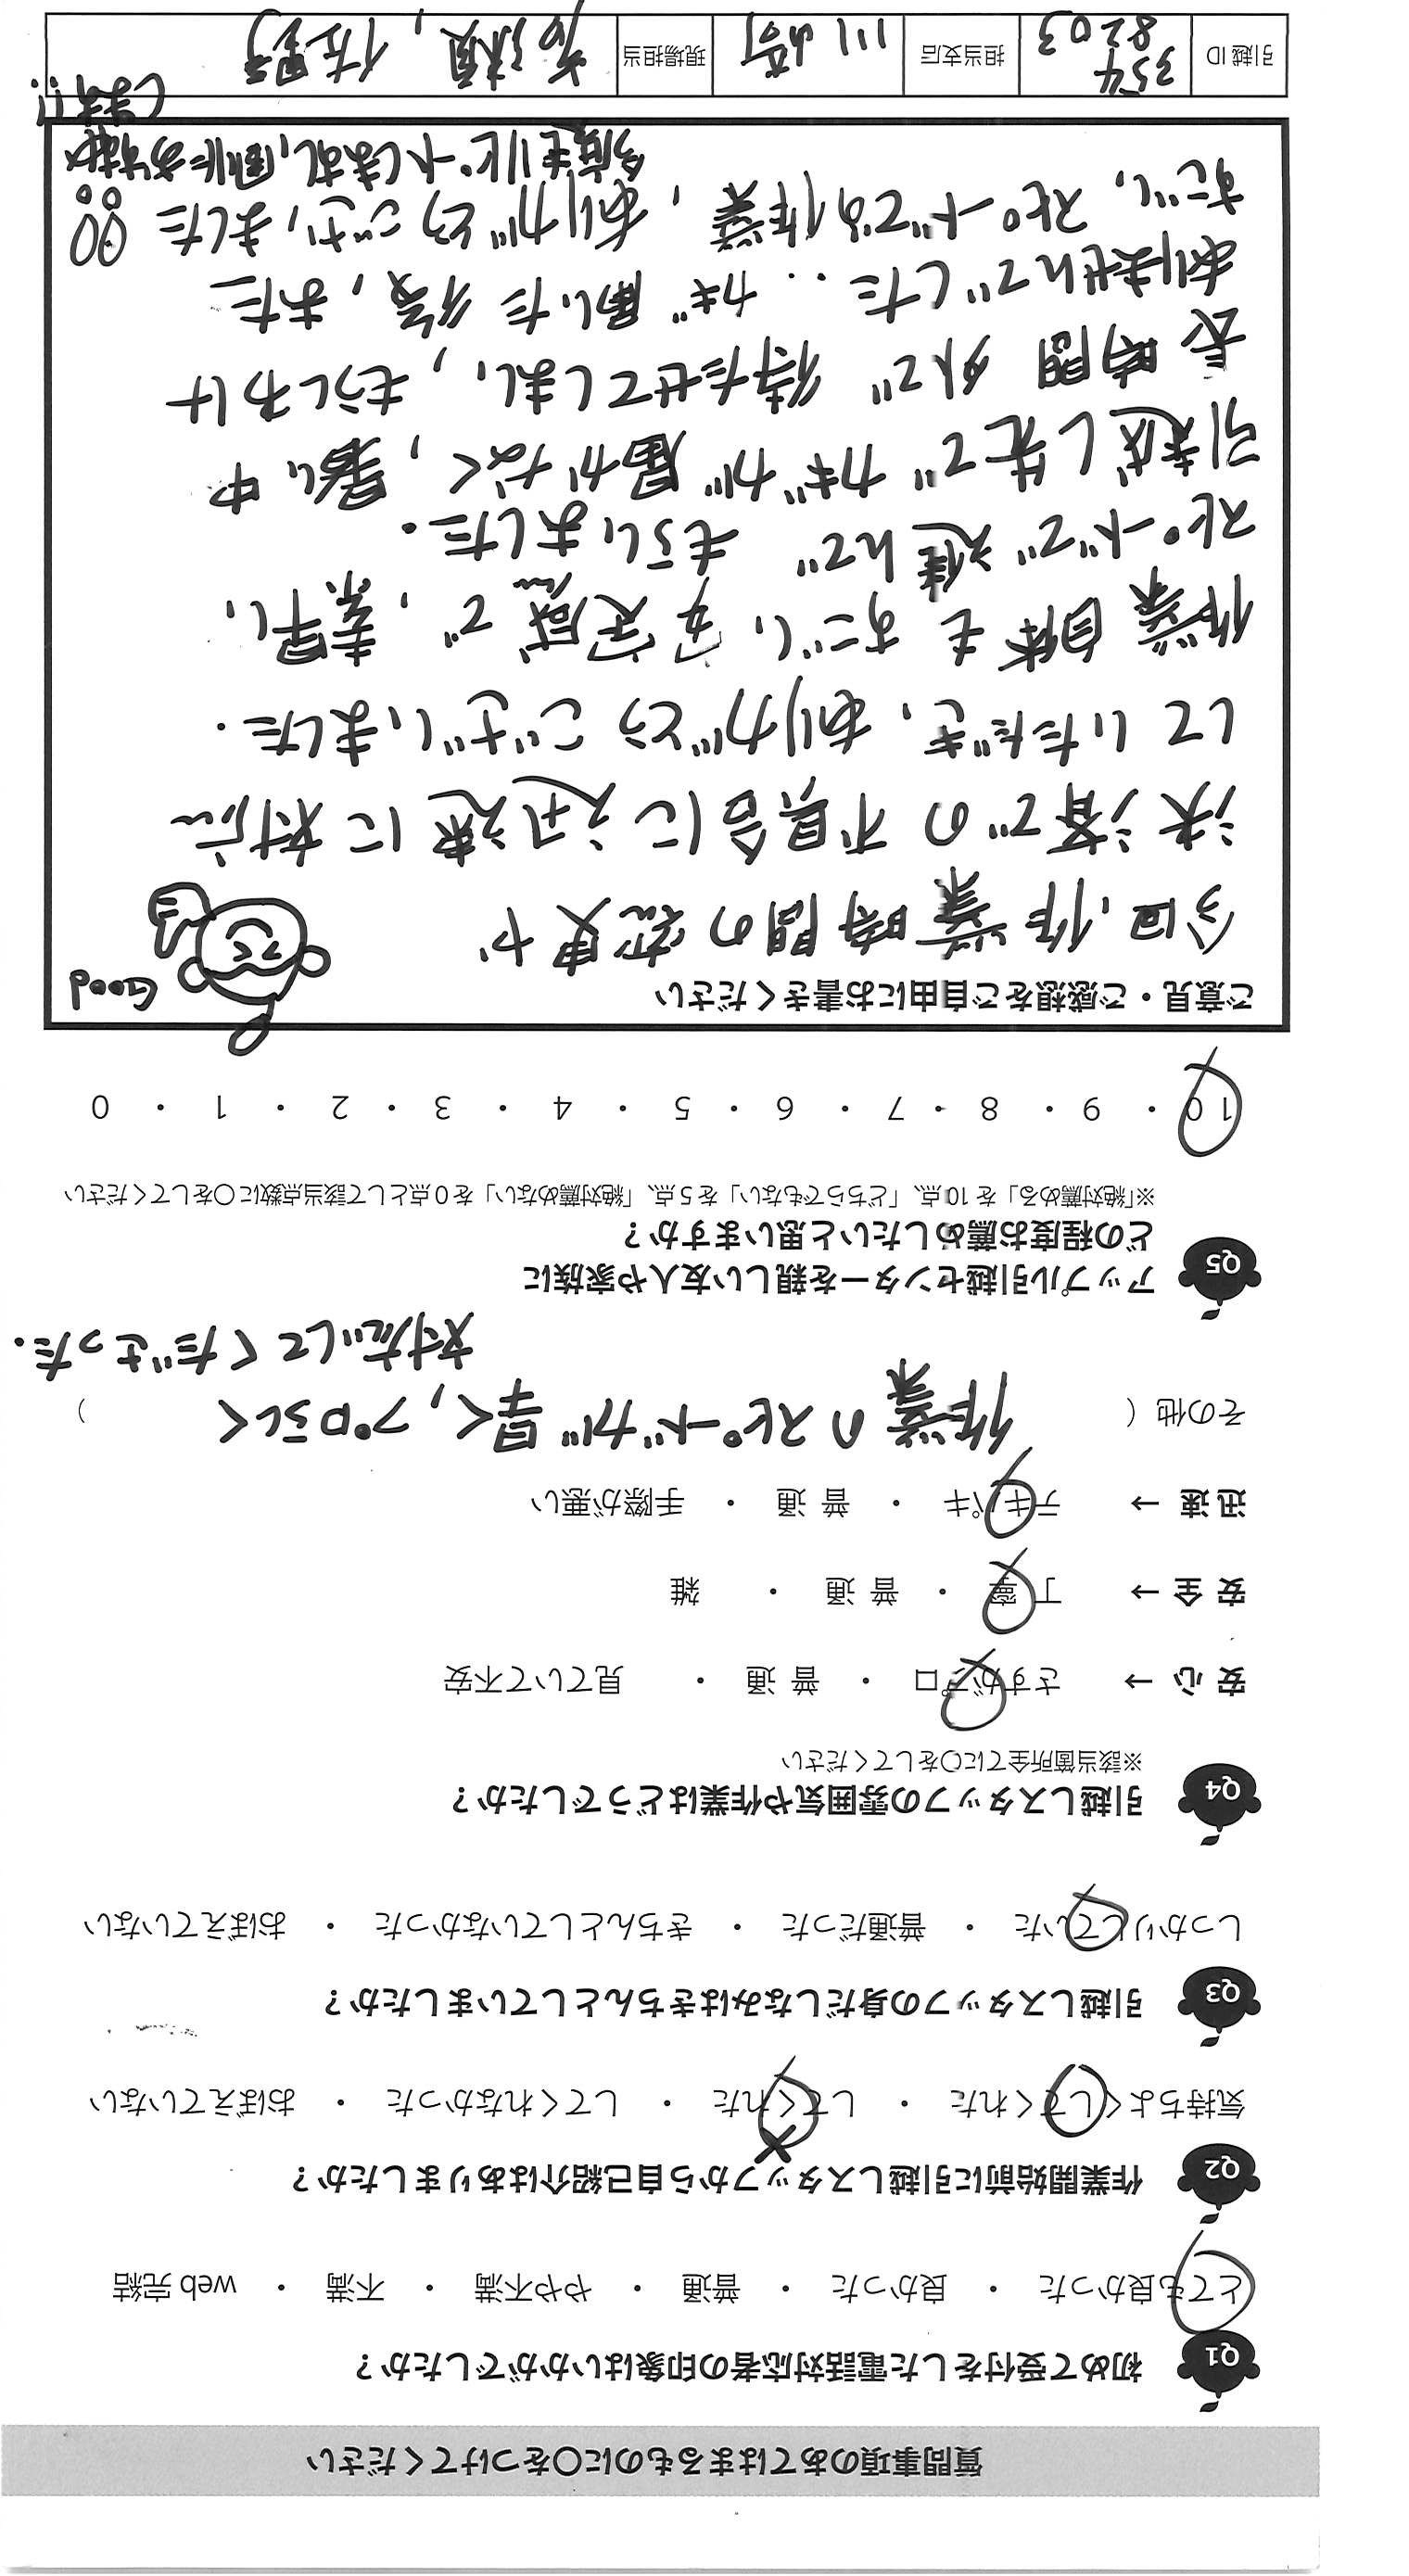 質問事項のあてはまるものに〇をつけてください
Q1 初めて受付をした電話対応者の印象はいかがでしたか？
とても良かった ・ 良かった ・ 普通 ・ やや不満 ・ 不満 ・ web 完結
Q2 作業開始前に引越しスタッフから自己紹介はありましたか？
気持ちよくしてくれた ・ してくれた ・ してくれなかった ・ おぼえていない
Q3 引越しスタッフの身だしなみはきちんとしていましたか？
しっかりしていた ・ 普通だった ・ きちんとしていなかった ・ おぼえていない
Q4 引越しスタッフの雰囲気や作業はどうでしたか？
※該当箇所全てに〇をしてください
安 心 → さすがプロ ・ 普 通 ・ 見ていて不安
安 全 → 丁 寧 ・ 普 通 ・ 雑
迅 速 → テキパキ ・ 普 通 ・ 手際が悪い
その他（ 作業のスピードが早く、プロらしく ）
対応してくださった.
Q5 アップル引越センターを親しい友人や家族に
どの程度お薦めしたいと思いますか？
※「絶対薦める」を 10 点、「どちらでもない」を 5 点、「絶対薦めない」を 0 点として該当点数に〇をしてください
10 ・ 9 ・ 8 ・ 7 ・ 6 ・ 5 ・ 4 ・ 3 ・ 2 ・ 1 ・ 0
ご意見・ご感想をご自由にお書きください
Good
今回、作業時間の変更や
決済での不具合に迅速に対応
していただき、ありがとうございました.
作業自体もすごい安定感で、素早い
スピードで進んで もらいました.
引越し先で カギが届かなく、暑い中
長時間 外で 待たせてしまい、もうしわけ
ありませんでした.. カギ 開いた後、また
すごい、スピードでの作業、ありがとうござ、ました
今度もリピートしますし、周りにおすすめ
します!!
引越 ID 354 8203 担当支店 川崎 現場担当